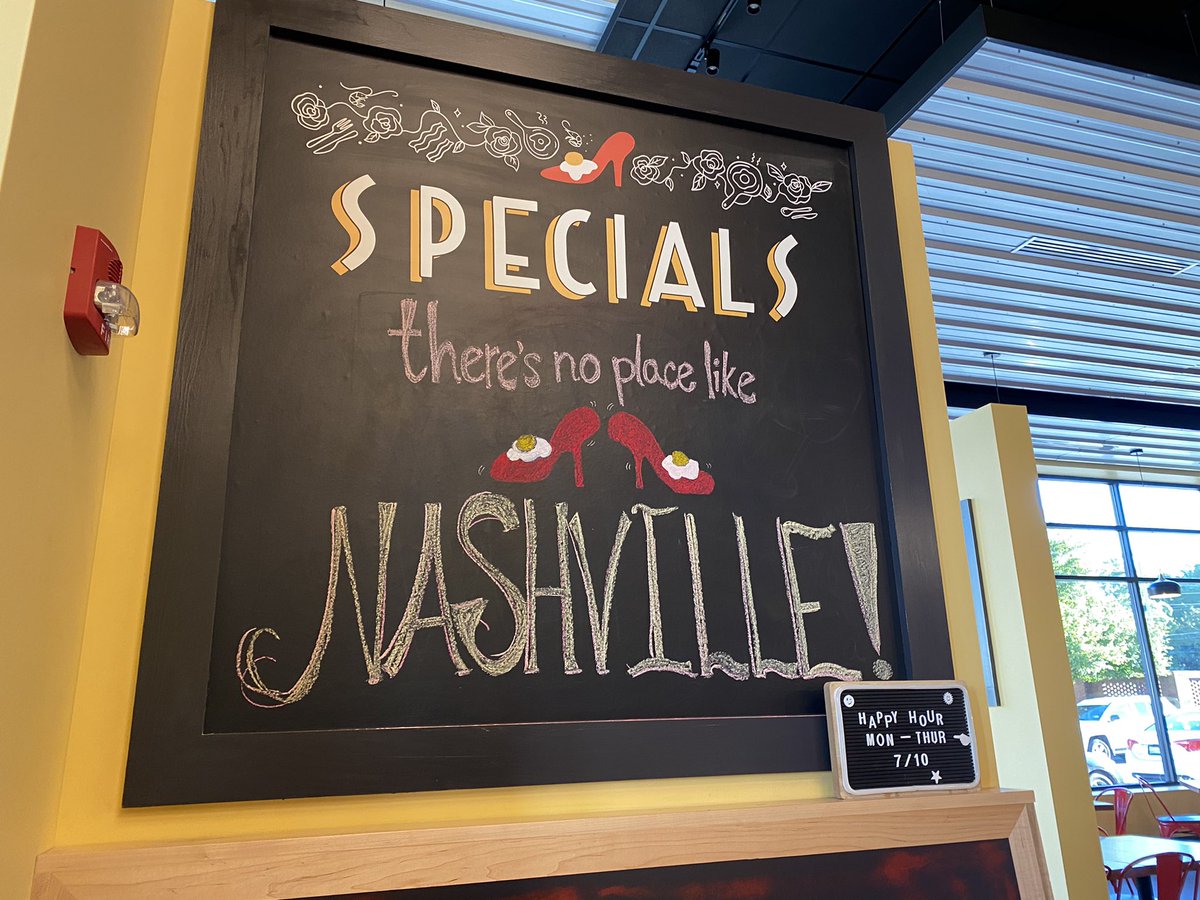 SPECIALS
there's no place like
NASHVILLE!
HAPPY HOUR
MON - THUR
7/10